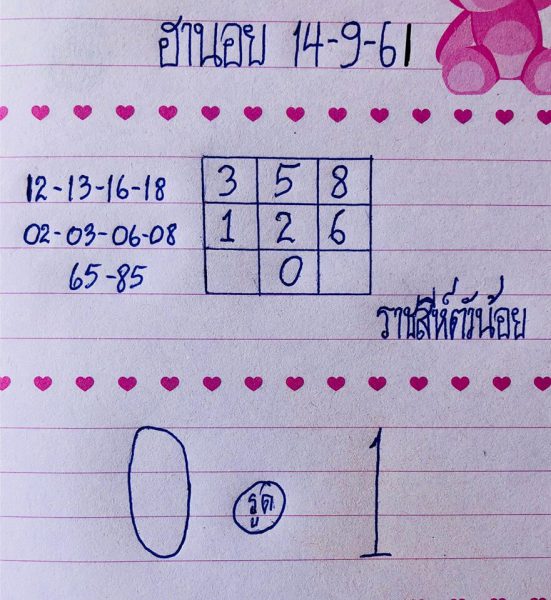 ฮานอย 14-9-61
12-13-16-18
02-03-06-08
65-85
3 5 8
1 2 6
0
ราชสีห์ตัวน้อย
0 รูด 1